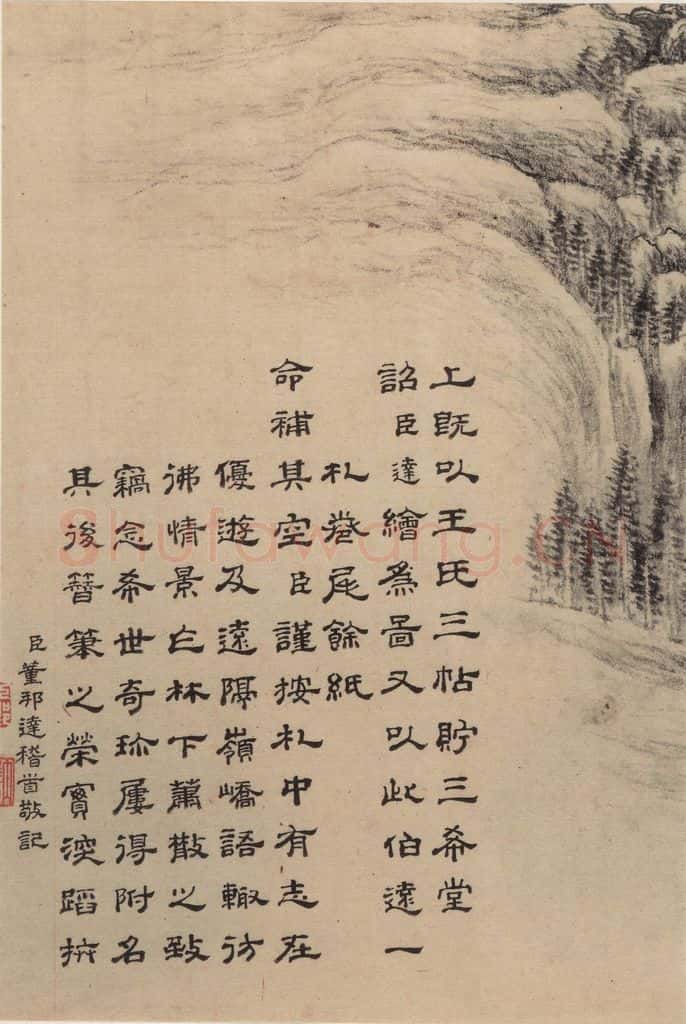 上既以王氏三帖貯三希堂
詔臣達繪爲啚又以此伯遠一
札卷尾餘紙
命補其空臣謹按札中有志在
優遊及遠隔嶺嶠語輙彷
彿情景亡林下蕭散之致
竊念希世奇珍屢得附名
其後簪筆之榮實深蹈抃
臣董邦達稽首敬記
Shufawang.CN